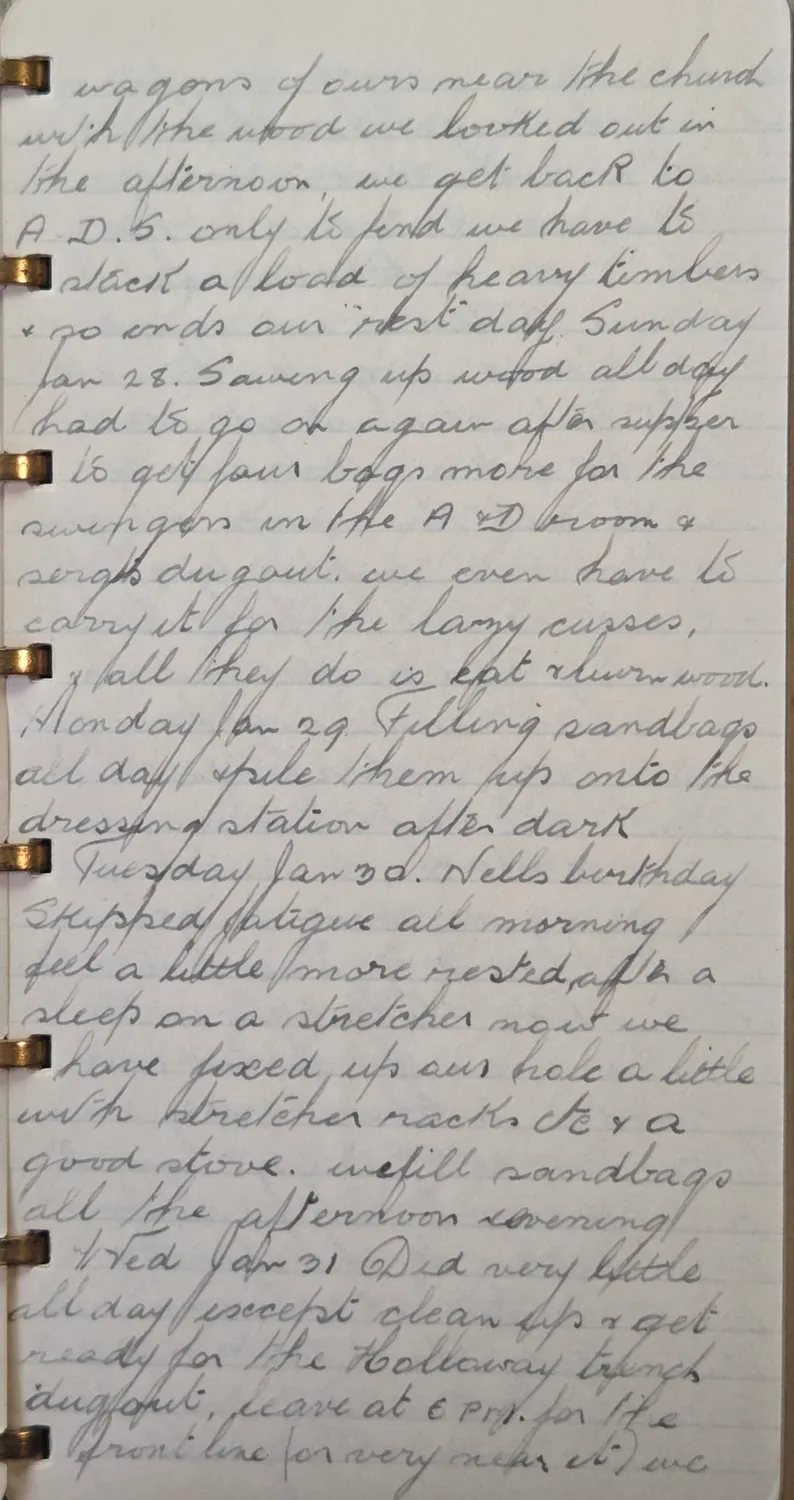 wagons of ours near the church
with the wood we looked out in
the afternoon, we get back to
A.D.S. only to find we have to
stack a load of heavy timbers
& so ends our "rest" day. Sunday
Jan 28. Sawing up wood all day
had to go on again after supper
to get four bags more for the
swingers in the A & D room &
sergts dugout. we even have to
carry it for the lazy cusses,
& all they do is eat & burn wood.
Monday Jan 29 Filling sandbags
all day & pile them up onto the
dressing station after dark
Tuesday Jan 30. Nells birthday
Skipped fatigue all morning
feel a little more rested, after a
sleep on a stretcher now we
have fixed up our hole a little
with stretcher racks etc & a
good stove. we fill sandbags
all the afternoon & evening
Wed Jan 31 Did very little
all day except clean up & get
ready for the Holloway trench
dugout, leave at 6 P.M. for the
front line (or very near it) we